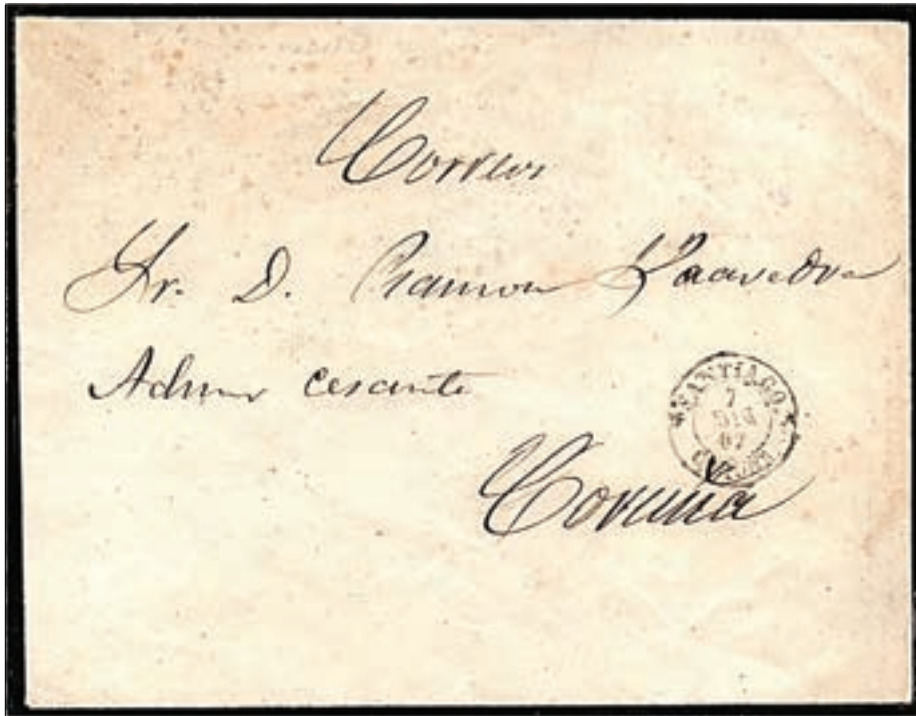 Correos
Sr. D. Ramon Saavedra
Admor cesante
SANTIAGO
7
DIC
Coruña